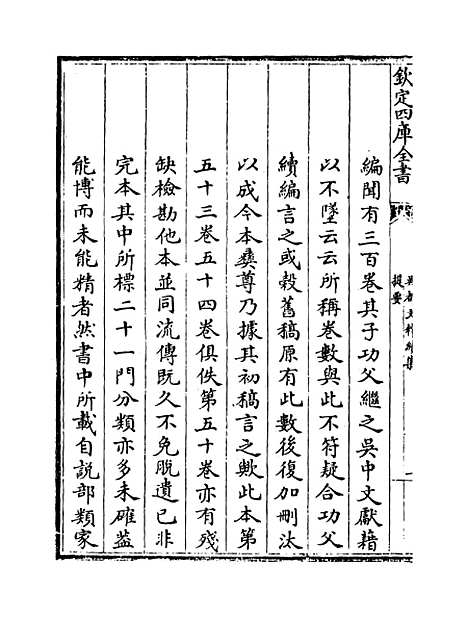 欽定四庫全書
提要
編聞有三百卷其子功父繼之吳中文獻藉
以不墜云云所稱卷數與此不符疑合功父
續編言之或穀舊稿原有此數後復加刪汰
以成今本彝尊乃據其初稿言之歟此本第
五十三卷五十四卷俱佚第五十卷亦有殘
缺檢勘他本並同流傳既久不免脫遺已非
完本其中所標二十一門分類亦多未確蓋
能博而未能精者然書中所載自説部類家